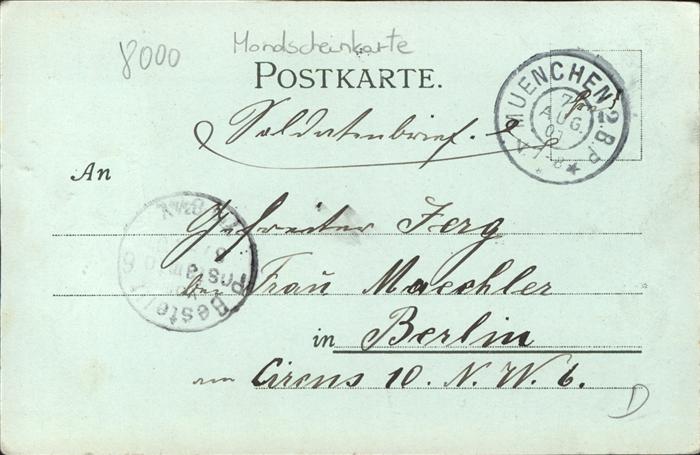 8000
Mondscheinkarte
POSTKARTE.
MUENCHEN 2 B.P.
7
AUG.
01
7-8
Soldatenbrief.
An
Gefreiter Ferg
bei Frau Maechler
in Berlin
am Circus 10. N.W. 6.
Bestellt
Postamt
6
D